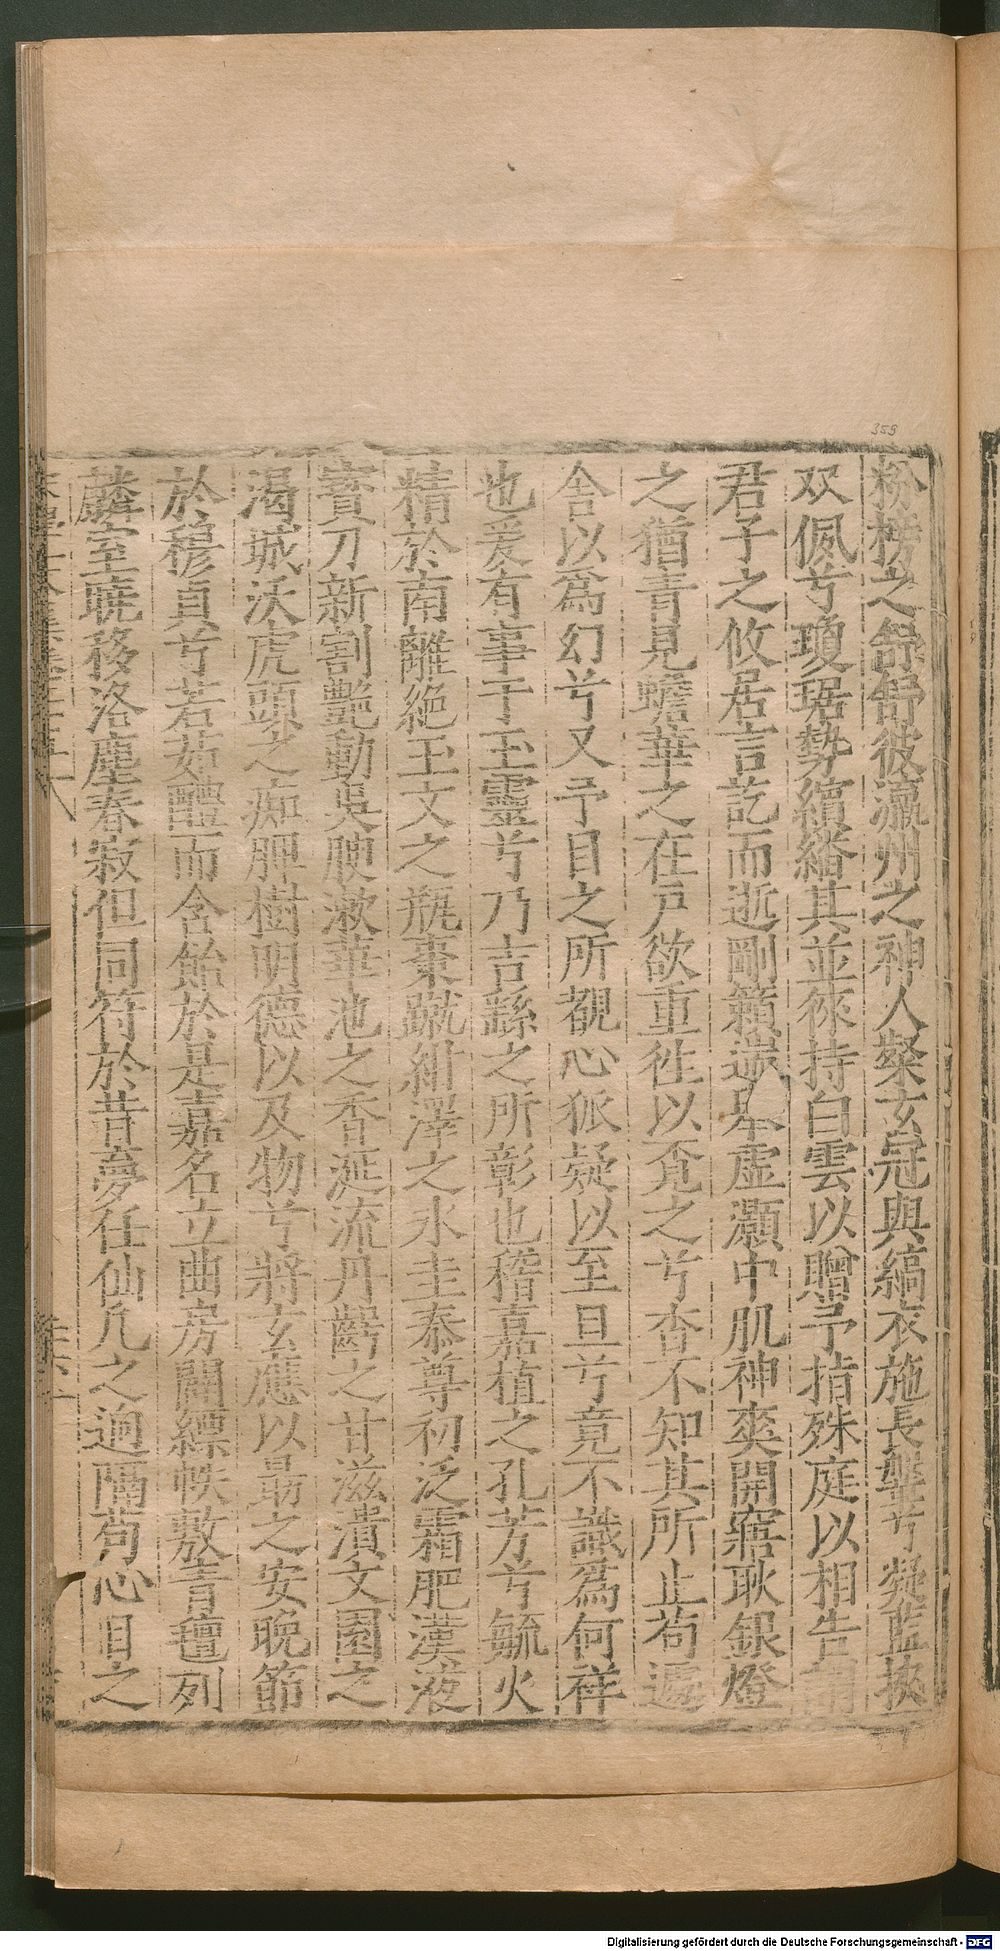 粉榜之舒舒彼瀛州之神人粲玄冠與縞衣施長鞶兮凝藍挾
双佩兮瓊琚勢繽繙其並徠持白雲以贈予指殊庭以相告謂
君子之攸居言訖而逝剛籟遊虛灝中肌神爽開窹耿銀燈
之猶青見蟾華之在戸欲重徃以覔之兮杳不知其所止苟遽
舍以為幻兮又予目之所覩心狐疑以至旦兮竟不識為何祥
也爰有事于玉靈兮乃吉繇之所彰也稽嘉植之孔芳兮毓火
精於南離絶王文之瓶棗蹴紺澤之氷圭泰尊初泛霜肥漢液
寳刀新割艶動吳腴漱華池之香涎流丹齶之甘滋潰文園之
渴城沃虎頭之痴胛樹明德以及物兮將玄應以勗之安晚節
於穆貞兮若茹醴而含飴於是嘉名立曲房開縹帙敷青氊列
麟室曉移洛塵春寂但同符於昔夢任仙凡之逈隔苟心目之
359
Digitalisierung gefördert durch die Deutsche Forschungsgemeinschaft - DFG